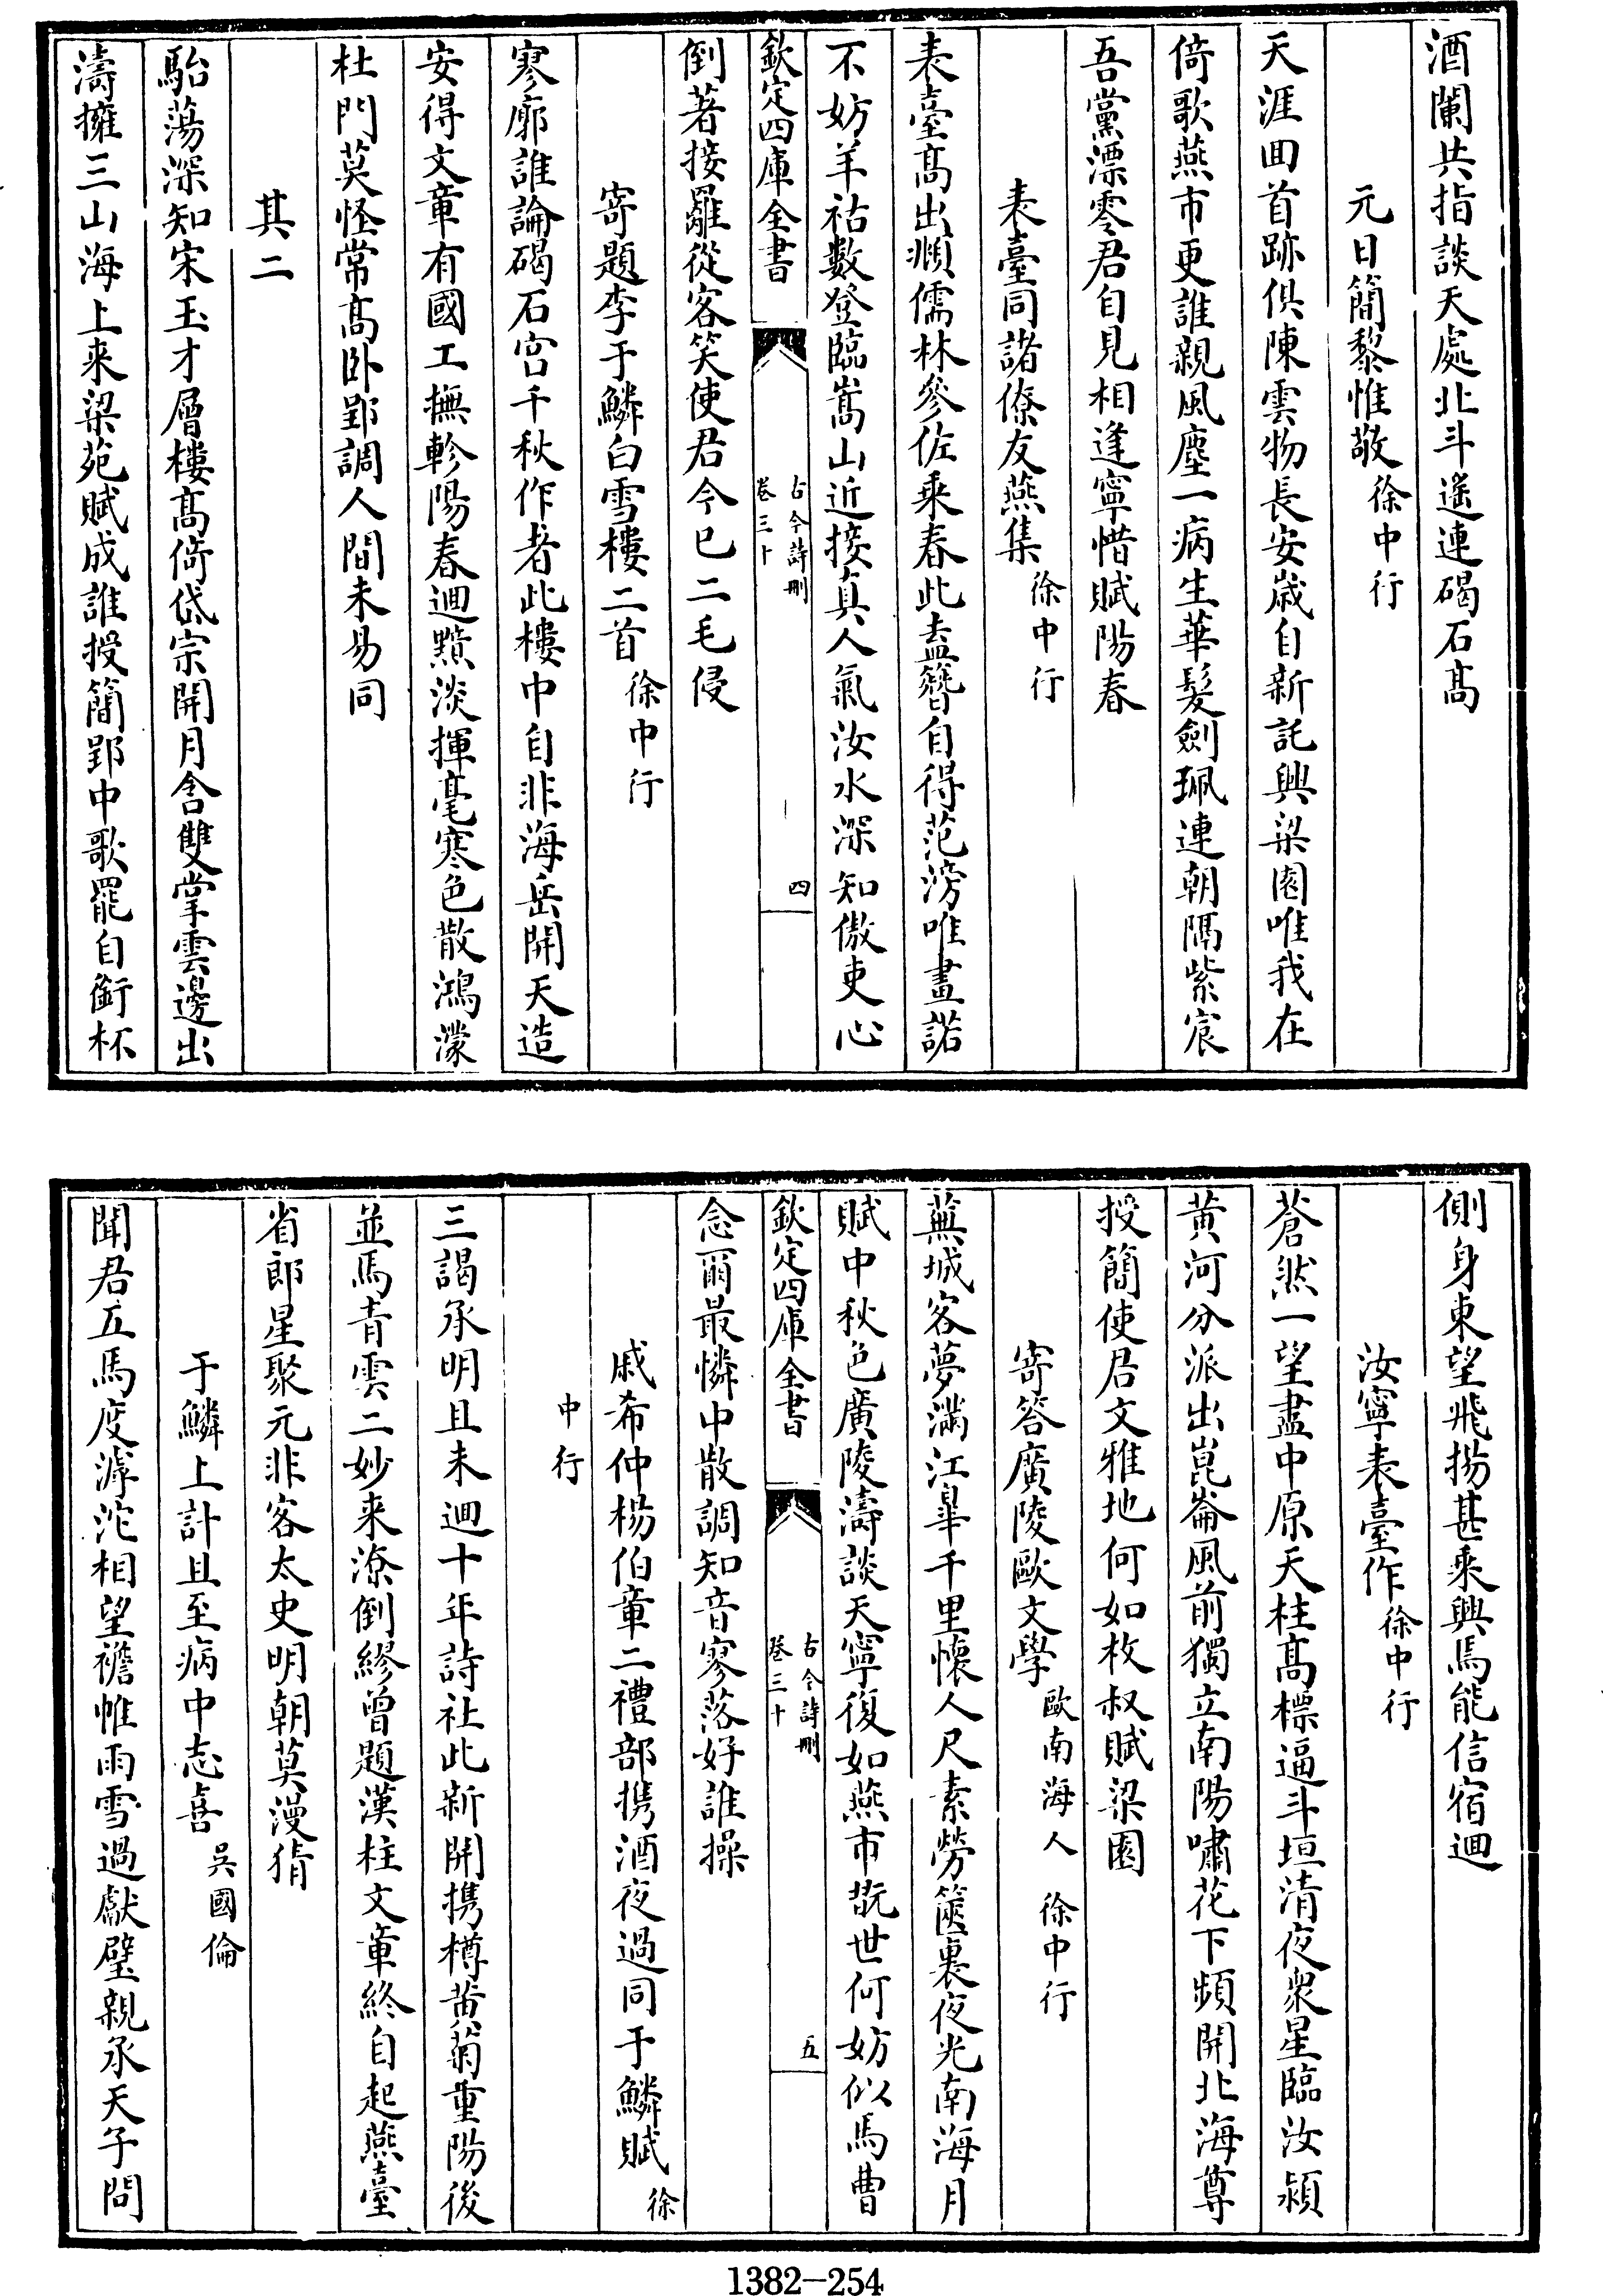 酒闌共指談天處北斗遙連碣石髙
元日簡黎惟敬徐中行
天涯囬首跡俱陳雲物長安歲自新託興梁園唯我在
倚歌燕市更誰親風塵一病生華髮劍珮連朝隔紫宸
吾黨漂零君自見相逢寧惜賦陽春
表臺同諸僚友燕集徐中行
表臺髙出頻儒林參佐乘春此盍簪自得范滂唯畫諾
不妨羊祜數登臨嵩山近接真人氣汝水深知傲吏心
欽定四庫全書
古今詩刪
卷三十
四
倒著接䍦從客笑使君今已二毛侵
寄題李于鱗白雪樓二首徐中行
寥廓誰論碣石宫千秋作者此樓中自非海岳開天造
安得文章有國工撫軫陽春迴黯淡揮毫寒色散鴻濛
杜門莫怪常髙卧郢調人間未易同
其二
駘蕩深知宋玉才層樓髙倚岱宗開月含雙掌雲邊出
濤擁三山海上来梁苑賦成誰授簡郢中歌罷自銜杯
側身東望飛揚甚乘興焉能信宿迴
汝寧表臺作徐中行
蒼然一望盡中原天柱髙標逼斗垣清夜衆星臨汝潁
黄河分派出崑崙風前獨立南陽嘯花下頻開北海尊
授簡使君文雅地何如枚叔賦梁園
寄答廣陵歐文學歐南海人 徐中行
蕪城客夢滿江臯千里懷人尺素勞篋裏夜光南海月
賦中秋色廣陵濤談天寧復如燕市翫世何妨似馬曹
欽定四庫全書
古今詩刪
卷三十
五
念爾最憐中散調知音寥落好誰操
戚希仲楊伯章二禮部携酒夜過同于鱗賦徐
中行
三謁承明且未迴十年詩社此新開携樽黄菊重陽後
並馬青雲二妙来潦倒繆曾題漢柱文章終自起燕臺
省郎星聚元非客太史明朝莫漫猜
于鱗上計且至病中志喜吳國倫
聞君五馬度滹沱相望襜帷雨雪過獻璧親承天子問
1382—254